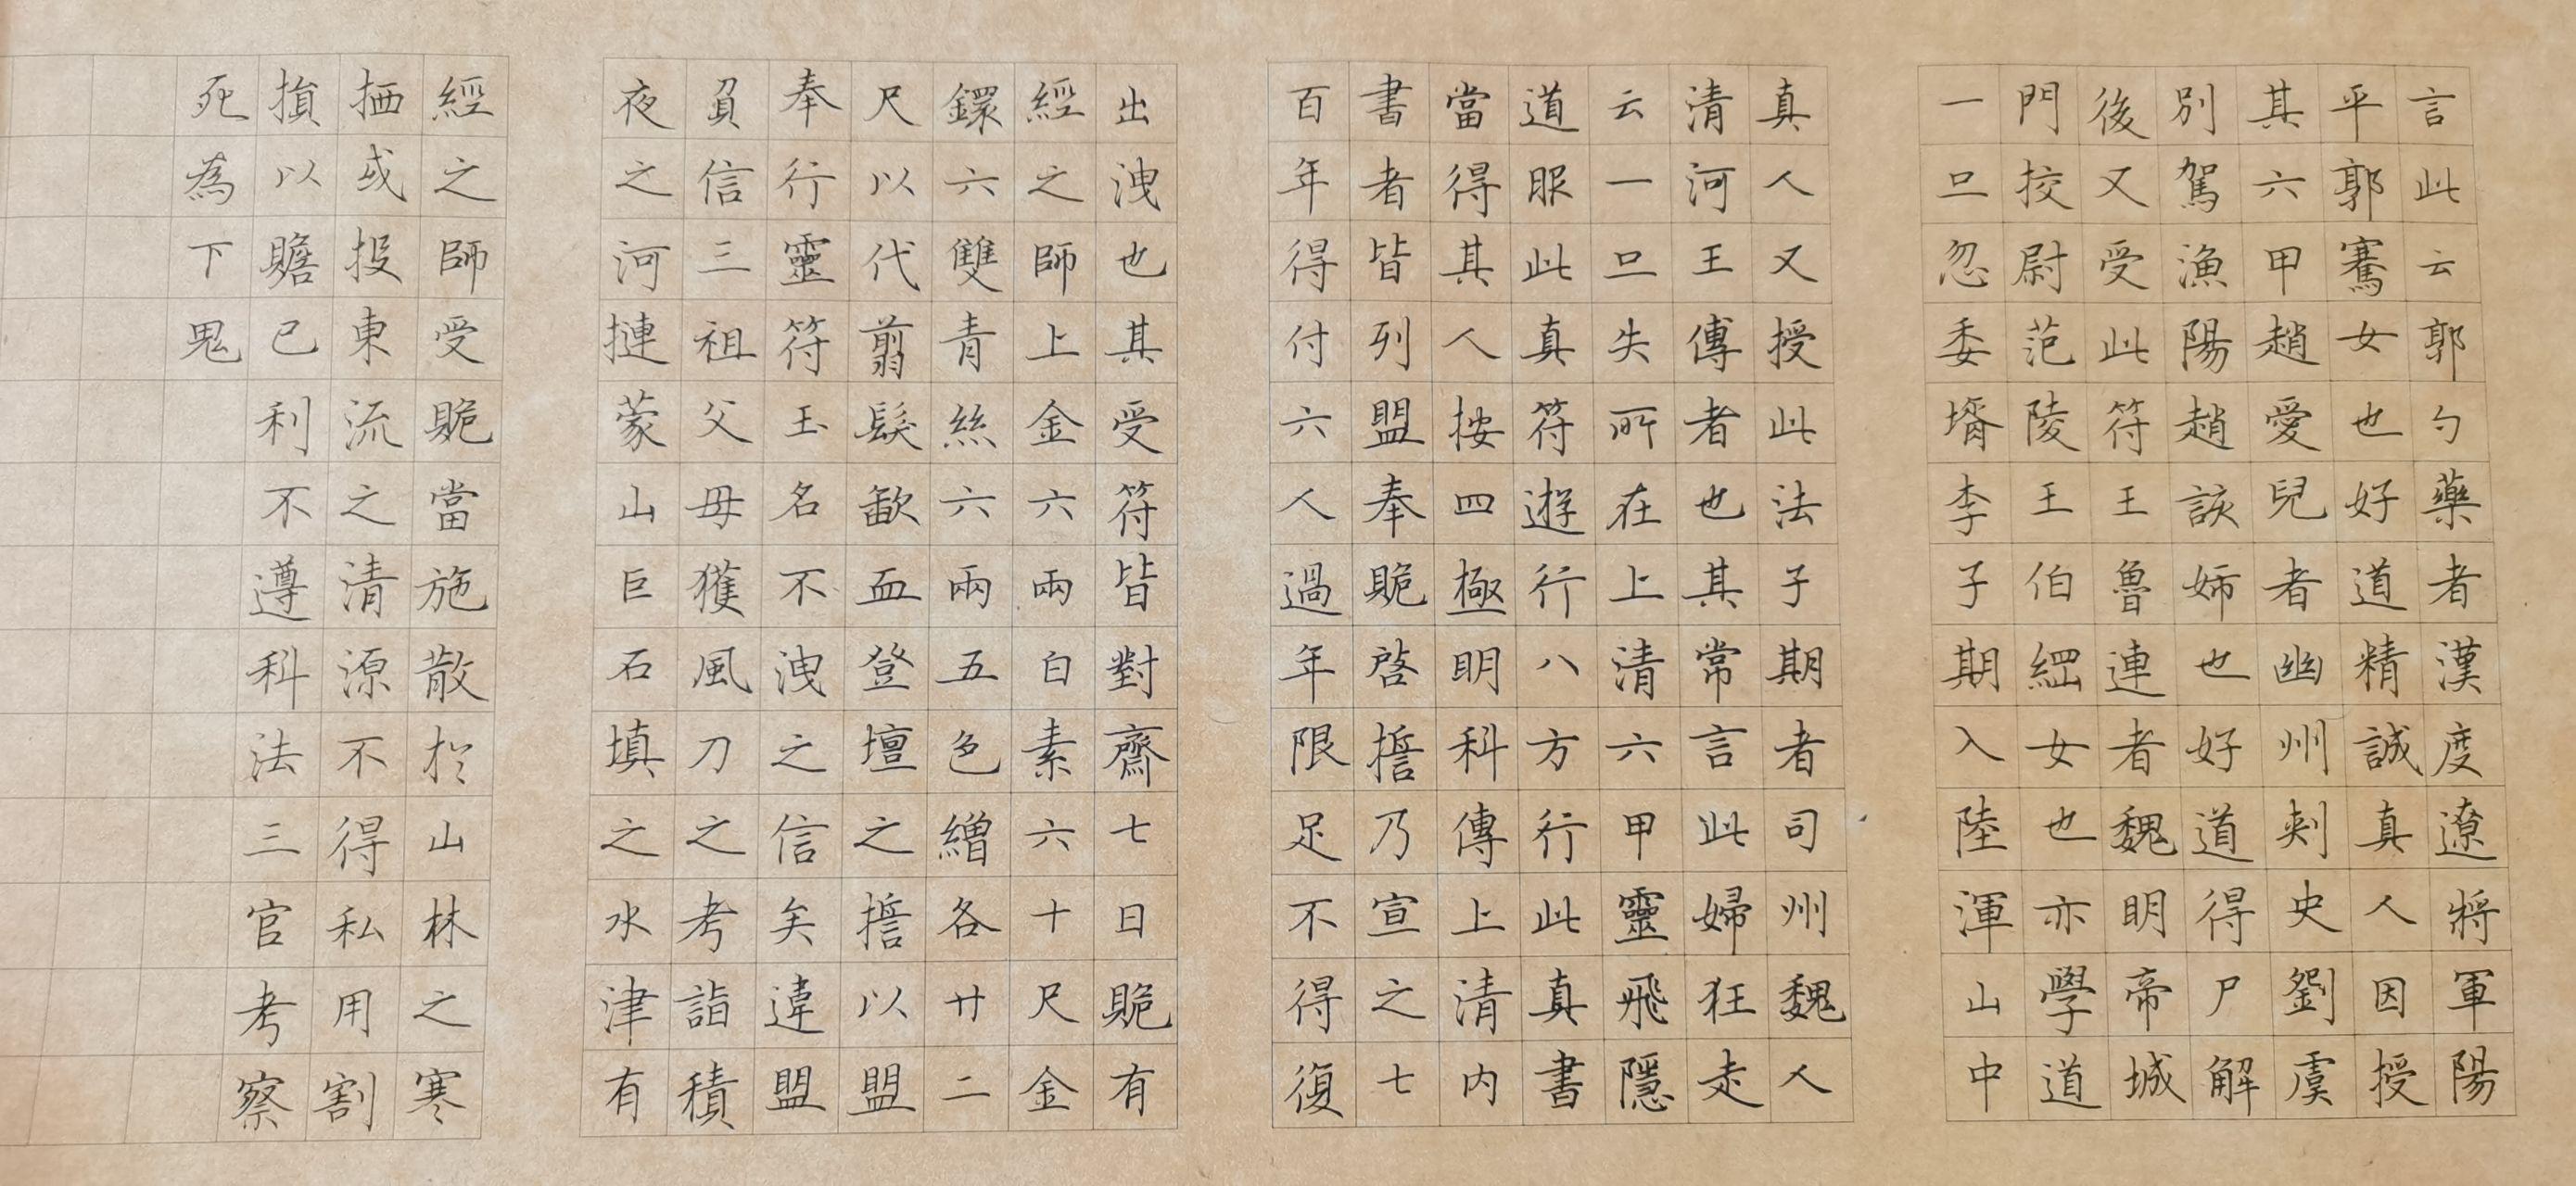 言此云郭勺藥者漢度遼將軍陽
平郭騫女也好道精誠真人因授
其六甲趙愛兒者幽州刾史劉虞
別駕漁陽趙該姊也好道得尸解
後又受此符王魯連者魏明帝城
門挍尉范陵王伯綱女也亦學道
一旦忽委壻李子期入陸渾山中
真人又授此法子期者司州魏人
清河王傳者也其常言此婦狂走
云一旦失所在上清六甲靈飛隱
道服此真符遊行八方行此真書
當得其人按四極明科傳上清内
書者皆列盟奉貤啓擔乃宣之七
百年得付六人過年限足不得復
出洩也其受符皆對齋七日貤有
經之師上金六兩白素六十尺金
鐶六雙青絲六兩五色繒各廿二
尺以代翦髮歃血登壇之擔以盟
奉行靈符玉名不洩之信矣違盟
負信三祖父母獲風刀之考詣積
夜之河摙蒙山巨石填之水津有
經之師受貤當施散於山林之寒
栖或投東流之清源不得私用割
損以贍己利不遵科法三官考察
死為下鬼